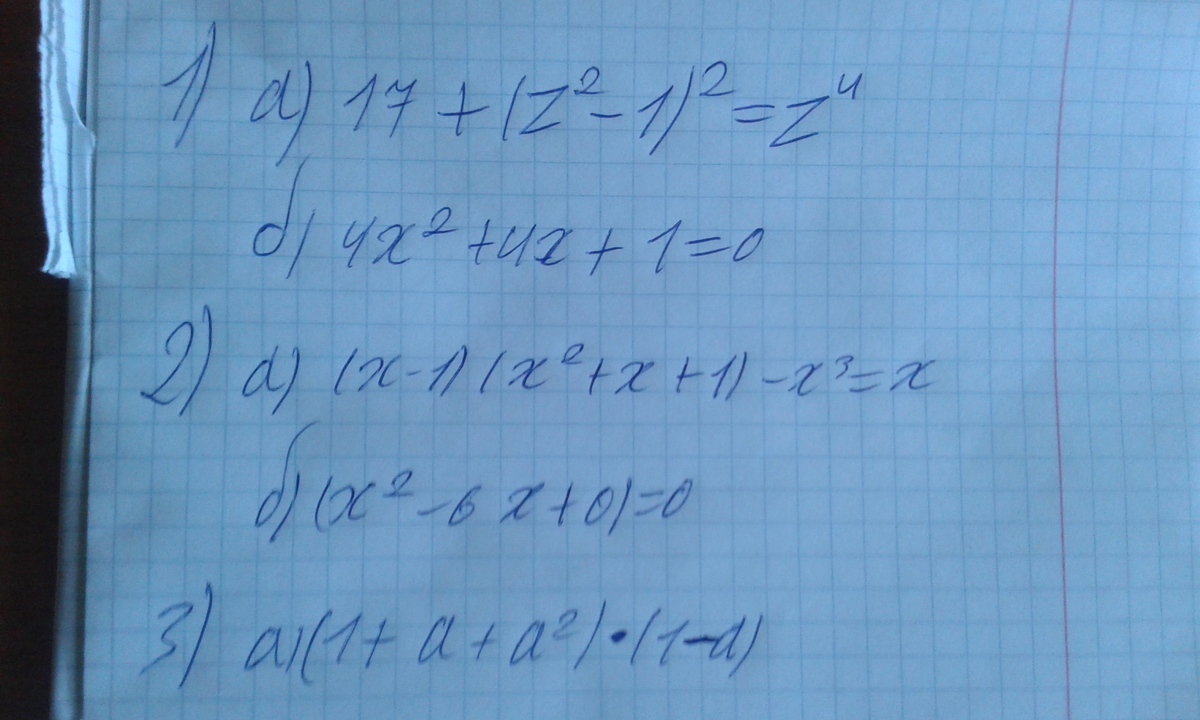 1) а) 17 + (z² - 1)² = z⁴
б) 4x² + 4x + 1 = 0
2) а) (x - 1) (x² + x + 1) - x³ = x
б) (x² - 6x + 0) = 0
3) а) (1 + a + a²) · (1 - a)